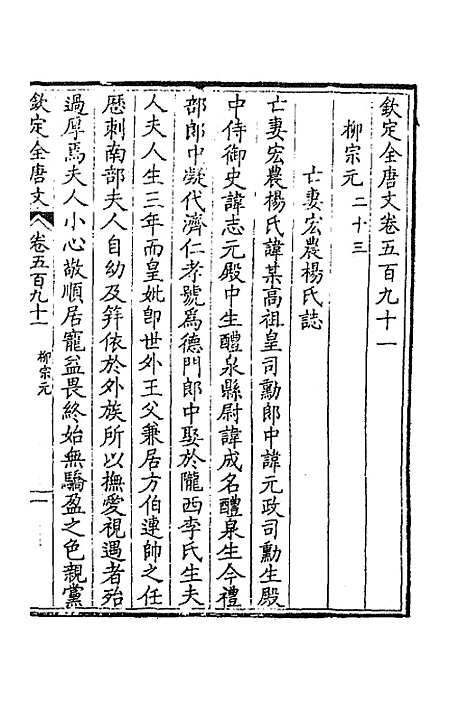 欽定全唐文卷五百九十一
柳宗元二十三
亡妻宏農楊氏誌
亡妻宏農楊氏諱某高祖皇司勳郎中諱元政司勳生殿
中侍御史諱志元殿中生醴泉縣尉諱成名醴泉生今禮
部郎中凝代濟仁孝號爲德門郎中娶於隴西李氏生夫
人夫人生三年而皇妣即世外王父兼居方伯連帥之任
歷刺南部夫人自幼及笄依於外族所以撫愛視遇者殆
過厚焉夫人小心敬順居寵益畏終始無驕盈之色親黨
欽定全唐文
卷五百九十一
柳宗元
一